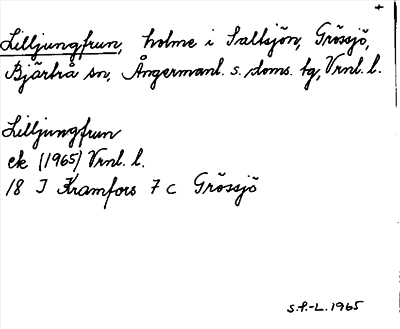 +
Lilljungfrun, holme i Saltsjön, Grössjö,
Bjärtrå sn, Ångermanl. s. doms. tg, Vrnl. l.
Lilljungfrun
ek (1965) Vrnl. l.
18 J Kramfors 7 c Grössjö
S.F.-L. 1965